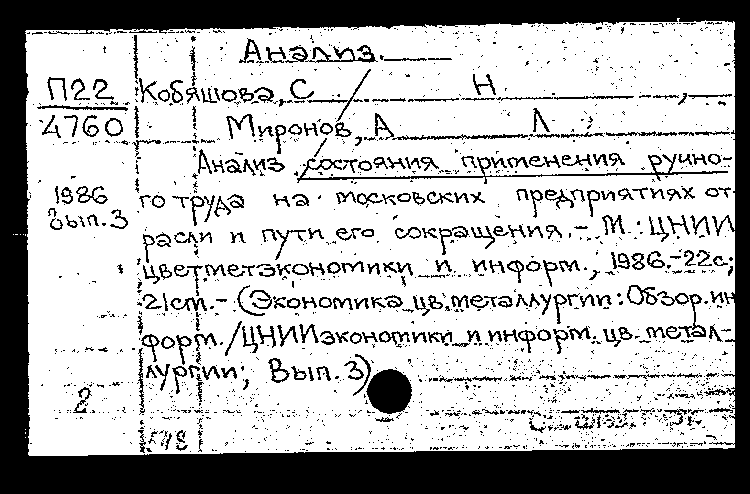 Анализ.
П22 Кобяшова, С Н ,
4760 Миронов, А Л
Анализ состояния применения ручно-
1986 го труда на московских предприятиях от-
Вып. 3 расли и пути его сокращения. - М.: ЦНИИ
цветметэкономики и информ., 1986.-22с;
21см. - (Экономика цв. металлургии: Обзор. ин
форм. / ЦНИИэкономики и информ. цв. метал-
лургии; Вып. 3)
2